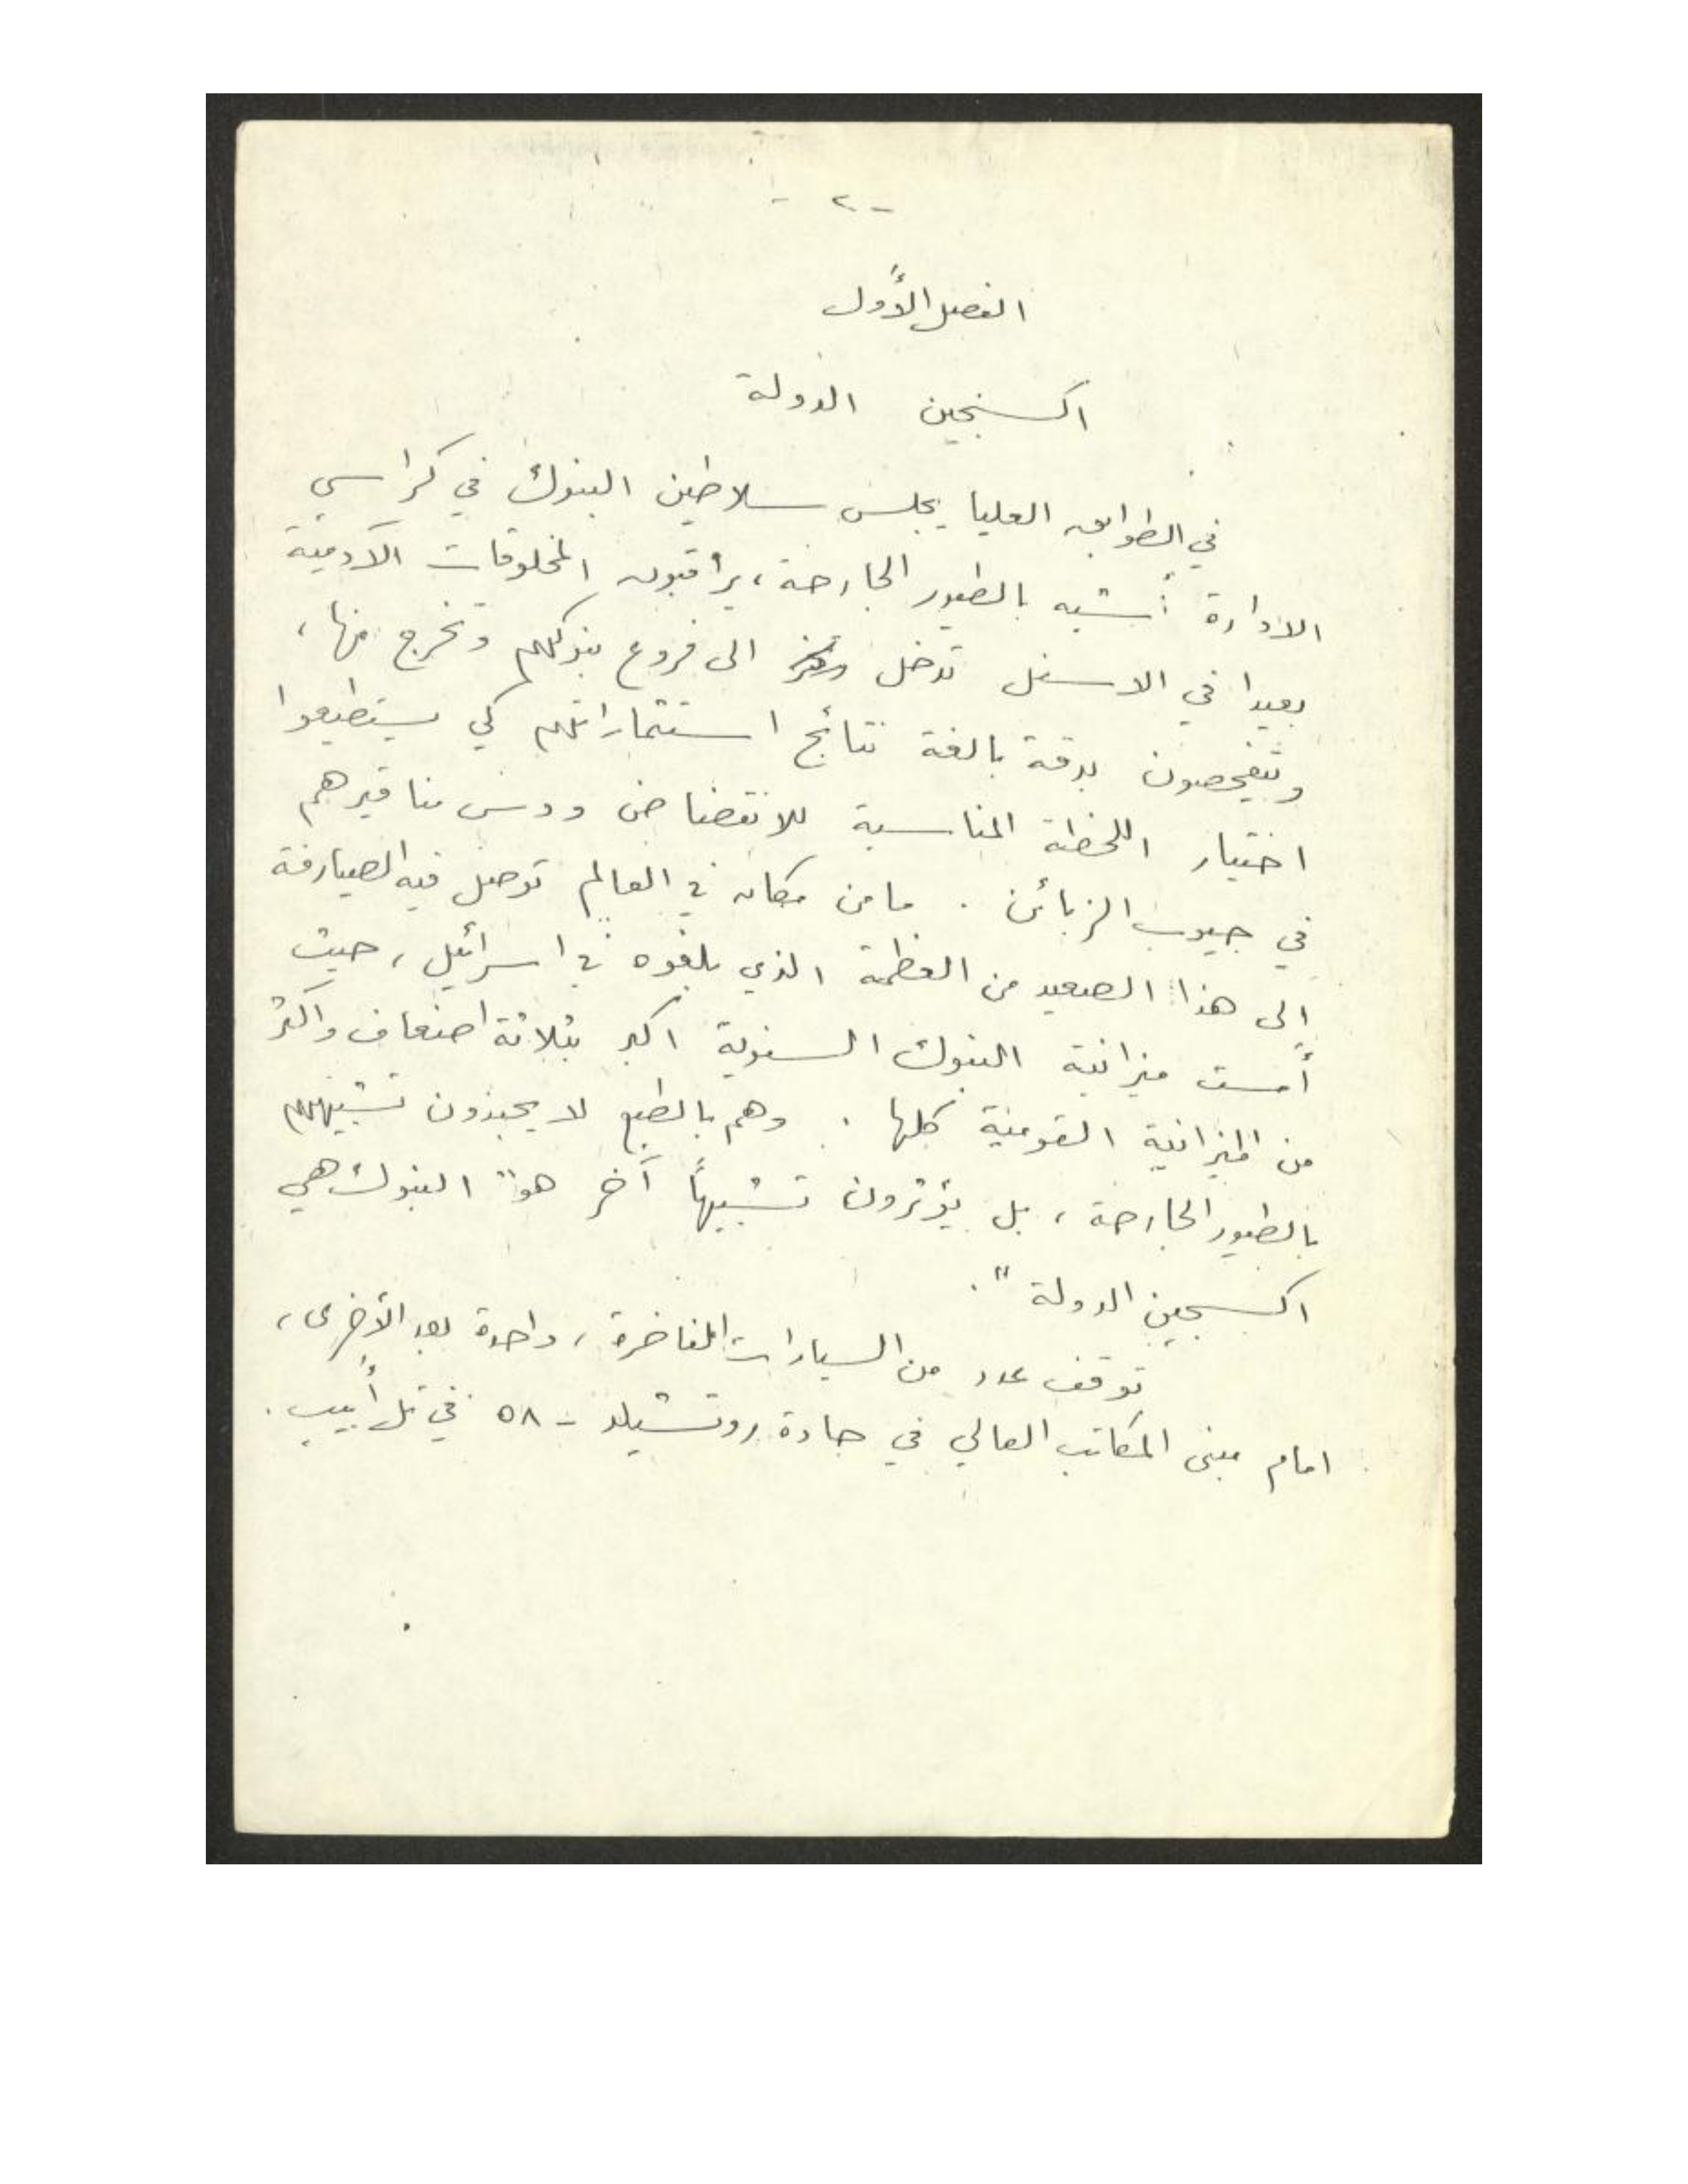 - ٢ -
الفصل الأول
اكسنجين الدولة
في الطوابق العليا يجلس سلاطين البنوك في كراسي
الادارة أشبه بالطيور الجارحة، يراقبون المخلوقات الآدمية
بعيدا في الاسفل تدخل الى فروع بنوكهم وتخرج منها،
ويتفحصون بدقة بالغة نتائج استثماراتهم كي يستطيعوا
اختيار اللحظة المناسبة للانقضاض ودس مناقيرهم
في جيوب الزبائن. ما من مكان في العالم توصل فيه الصيارفة
إلى هذا الصعيد من العظمة الذي بلغوه في اسرائيل، حيث
أمست ميزانية البنوك السنوية اكبر بثلاثة اضعاف واكثر
من الميزانية القومية كلها. وهم بالطبع لا يحبذون تشبيههم
بالطيور الجارحة، بل يؤثرون تشبيهاً آخر هو "البنوك هي
اكسجين الدولة".
توقف عدد من السيارات الفاخرة، واحدة بعد الأخرى،
امام مبنى المكاتب العالي في جادة روتشيلد - ٥٨ في تل أبيب.